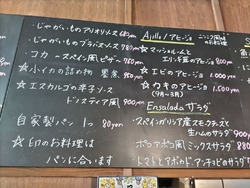 じゃがいもの アリオリソース 680yen
じゃがいもの ブラバスソース 780yen
コカ - スペイン風ピザ - 780yen
☆小イカの詰め物 墨煮 950yen
☆エスカルゴの辛子ソース
ドノスティア風 900yen
自家製パン 1ヶ 80yen
☆印のお料理は
パンに合います
Ajillo / アヒージョ
☆マッシュルームと
エリンギ茸のアヒージョ
☆エビのアヒージョ
☆カキのアヒージョ
(9月〜3月) 1150
Ensalada サラダ
スペインガリシア産スモークチーズと
生ハムのサラダ 900
ポコアポコ風ミックスサラダ 880
トマトとアボカド、アンチョビのサラダ